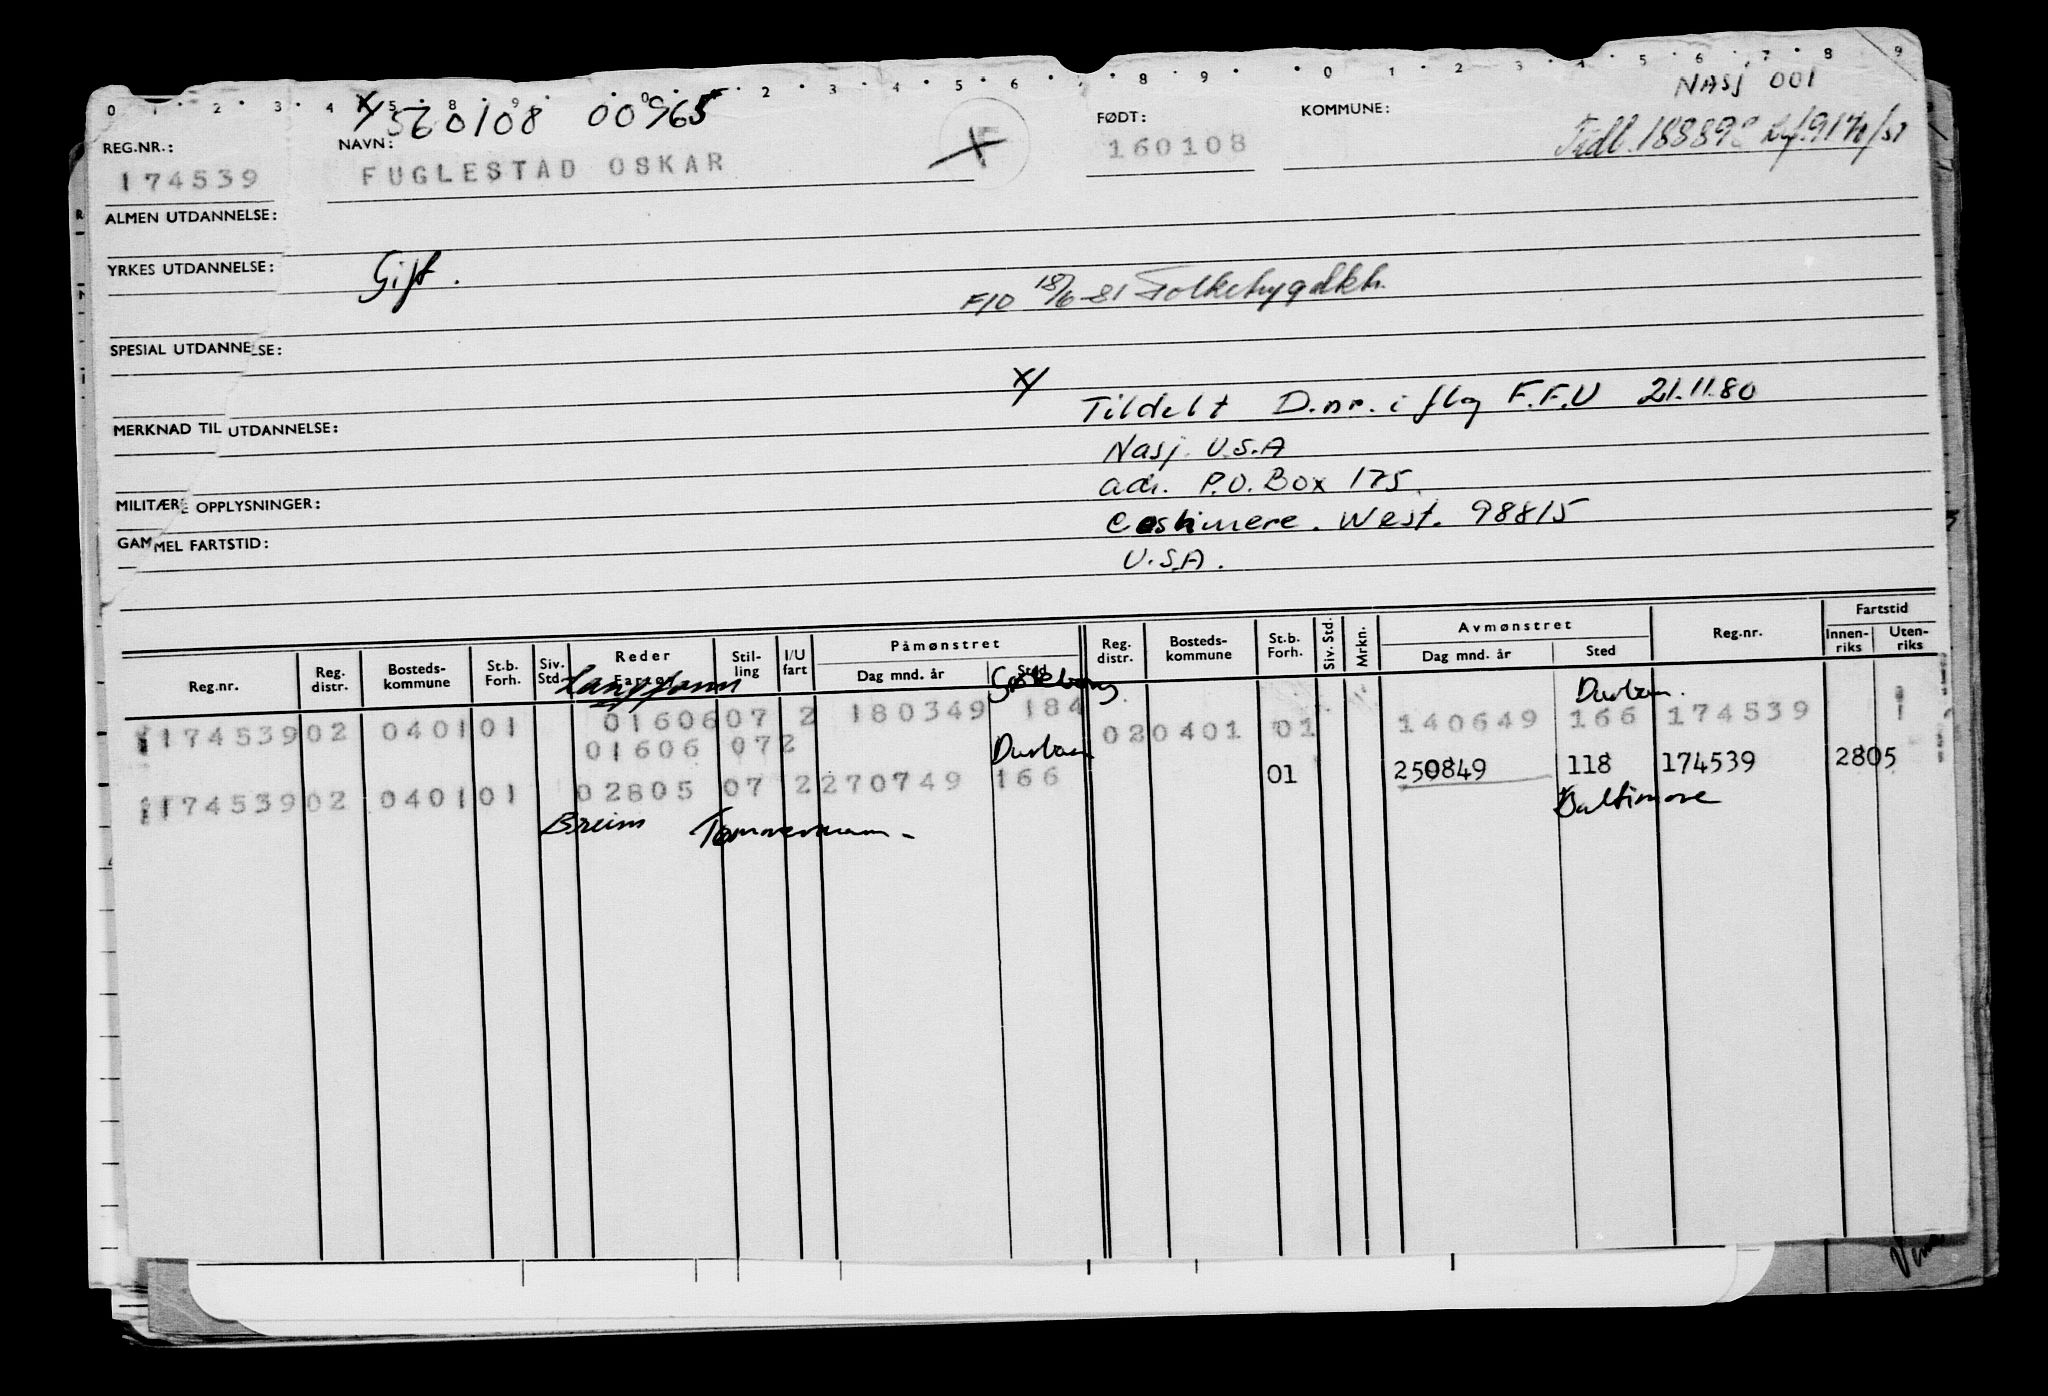 0 1 2 3 4 5 8 9 0 2 3 4 5 6 8 9 0 1 2 3 4 5 6 7 8 9
x/ 560108 00965
NASJ 001
REG.NR.: NAVN: FØDT: KOMMUNE:
174539 FUGLESTAD OSKAR 160108
ALMEN UTDANNELSE:
YRKES UTDANNELSE: Gift.
F10 18/6-81 Folkebygdkh.
SPESIAL UTDANNELSE:
x/ Tildelt D.nr. i flg F.F.U 21.11.80
MERKNAD TIL UTDANNELSE: Nasj. U.S.A
adr. P.O. Box 175
MILITÆRE OPPLYSNINGER: Cashmere. West. 98815
GAMMEL FARTSTID: U.S.A.
Reg.nr. Reg. distr. Bosteds- kommune St.b. Forh. Siv. Std. Reder Fartøy Stil- ling I/U fart Påmønstret Dag mnd. år Sted Reg. distr. Bosteds- kommune St.b. Forh. Siv. Std. Mrkn. Avmønstret Dag mnd. år Sted Reg.nr. Fartstid Innen- riks Uten- riks
Langfjann Gøteborg Durban.
1174539 02 0401 01 01606 07 2 180349 184 02 0401 01 140649 166 174539
01606 07 2 Durban
01 250849 118 174539 2805
1174539 02 0401 01 02805 07 2 270749 166 Baltimore
Breim Tømmermann